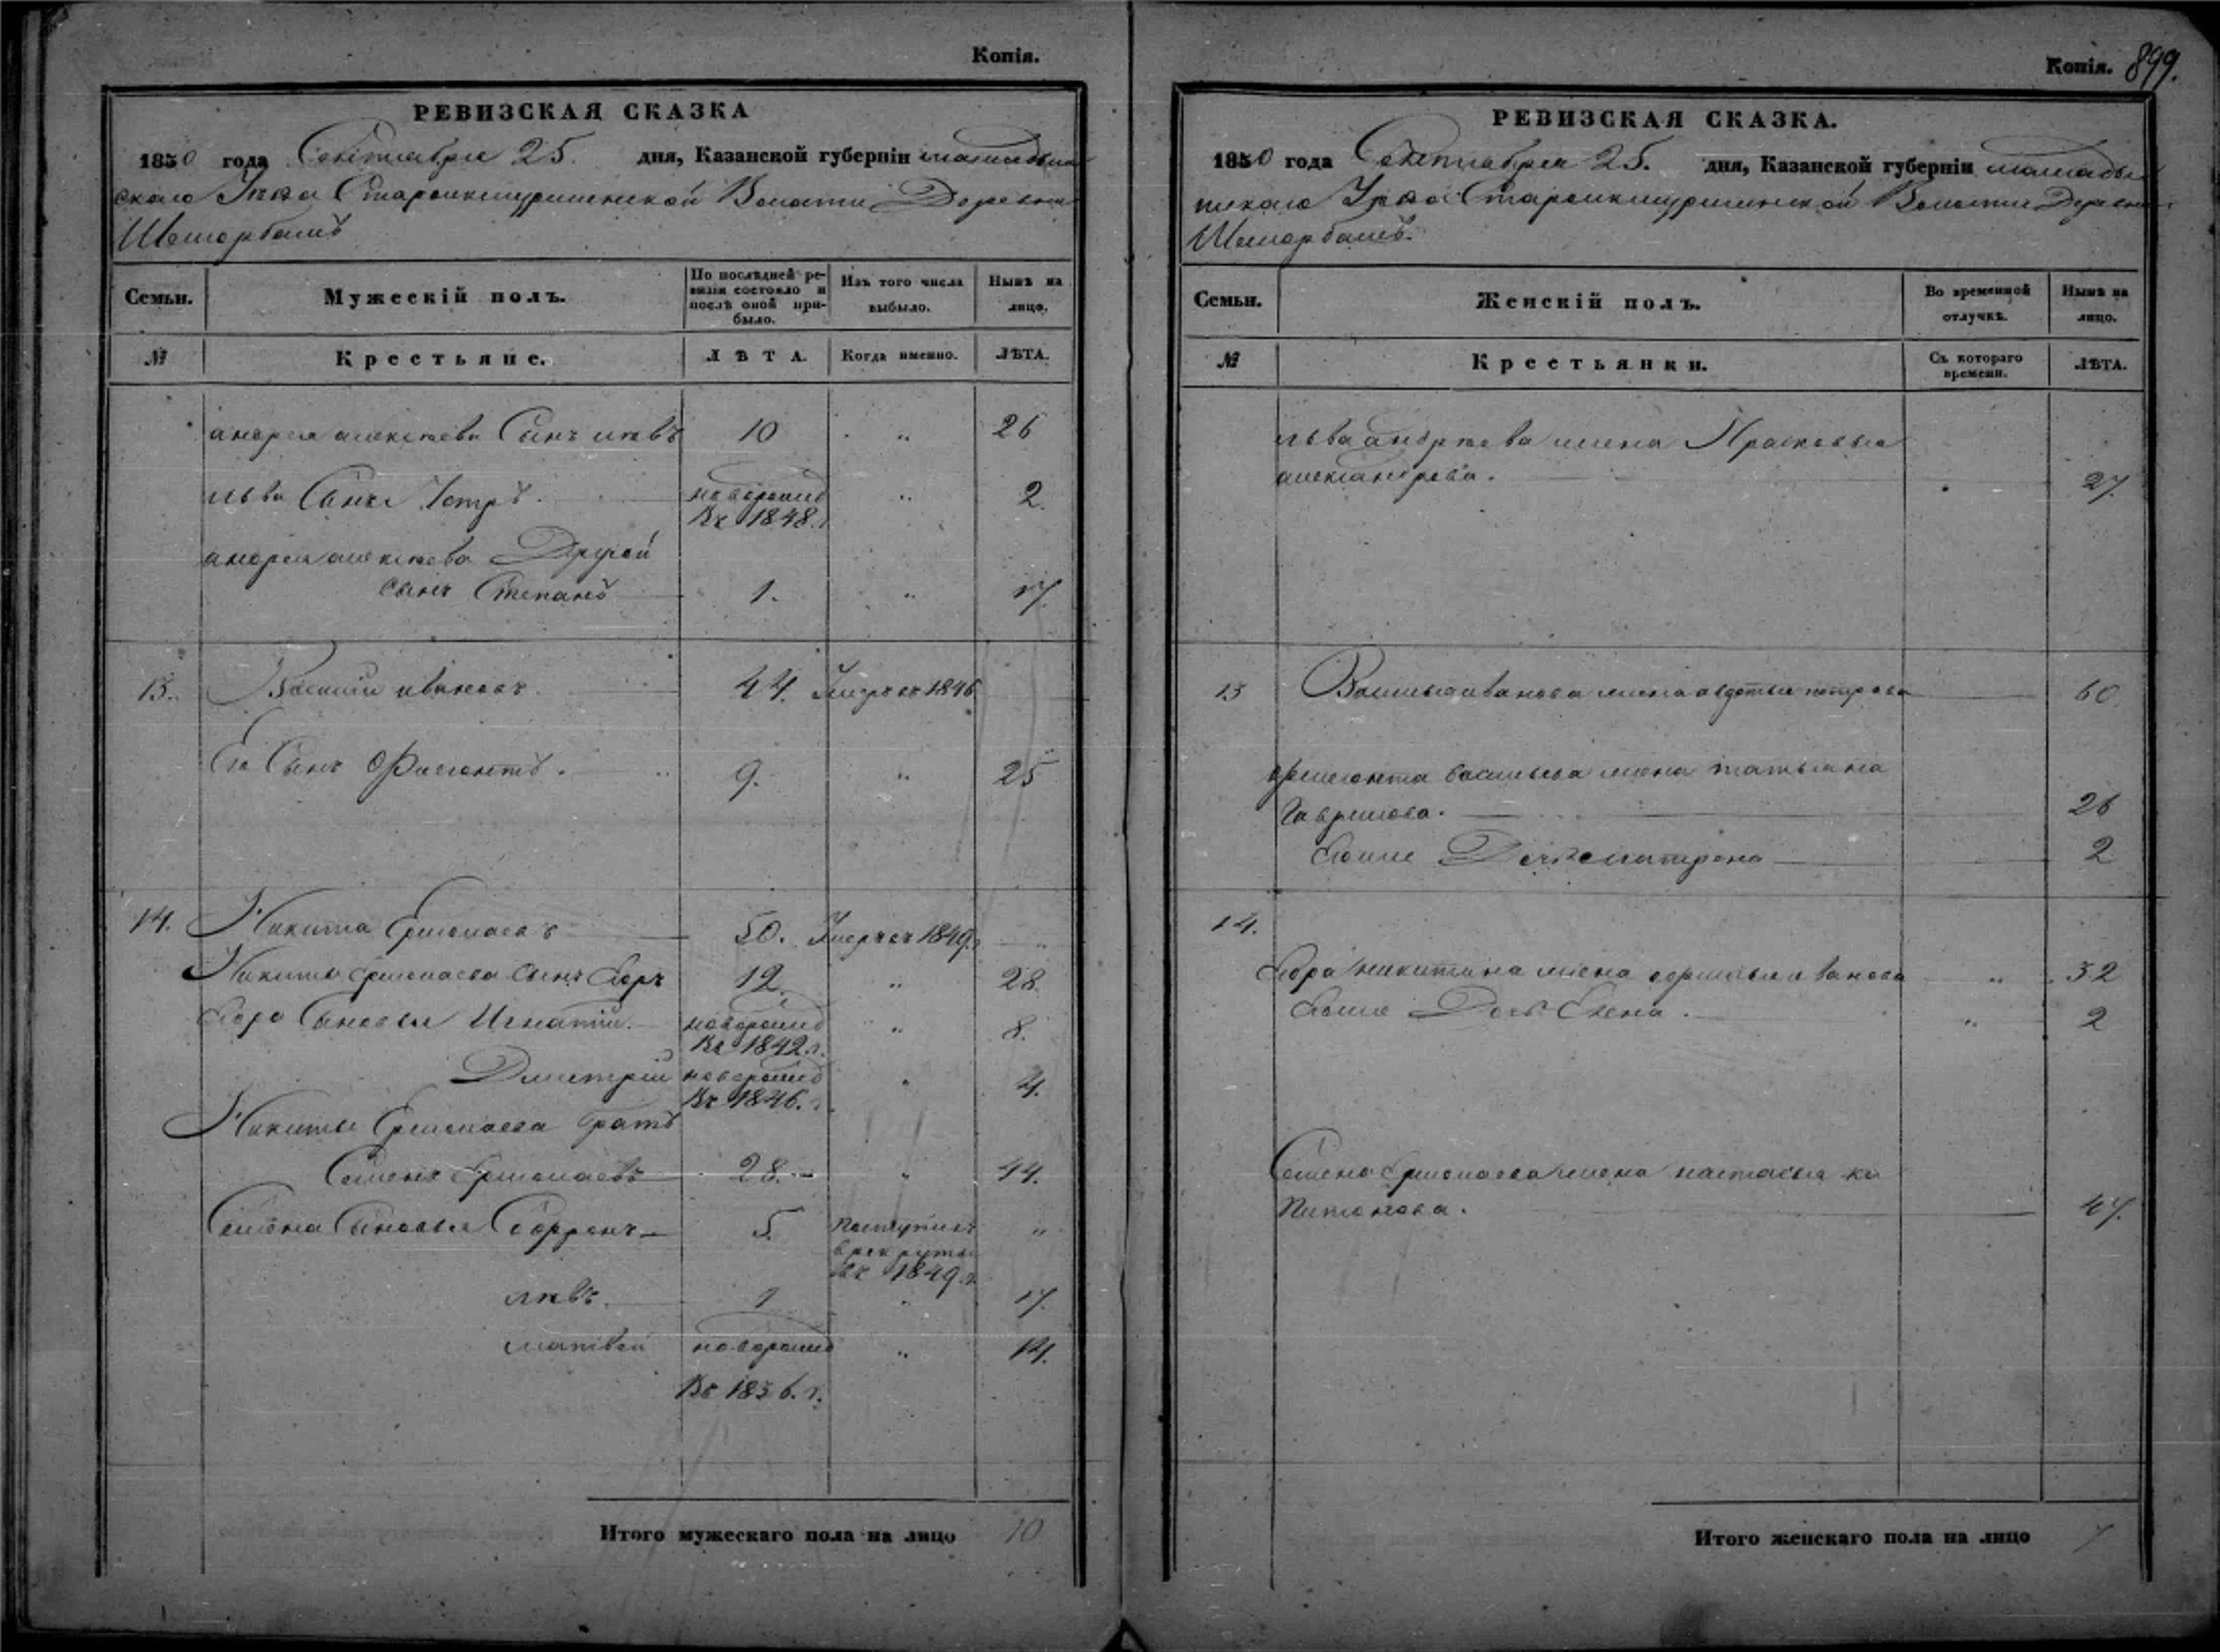 Копія.
РЕВИЗСКАЯ СКАЗКА
1850 года Сентября 25 дня, Казанской губерніи мамадыш
скаго Уѣзда Староикшурминской Волости Деревни
Шеморбашъ
Семьи. Мужескій полъ. По послѣдней ревизіи состояло и послѣ оной прибыло. Изъ того числа выбыло. Нынѣ на лицо.
№ Крестьяне. ЛѢТА. Когда именно. ЛѢТА.
андрея алексѣева Сынъ левъ 10 „ 26
льва Сынъ Петръ. новорожд „ 2.
Въ 1848. г
андрея алексѣева Другой
сынъ Степанъ 1. „ 17.
13. Василий ивановъ 44. Умеръ въ 1846
Его Сынъ Филионтъ. 9. „ 25
14. Никита Ермолаевъ 50. Умеръ въ 1849 г „
Никиты Ермолаева Сынъ Егоръ 12. „ 28.
Егора Сыновья Игнатій новорожд „ 8.
Въ 1842. г.
Дмитрій новорожд „ 4.
Въ 1846. г.
Никиты Ермолаева братъ
Семенъ Ермолаевъ 28. „ 44.
Семена Сыновья Софронъ 5. поступилъ „
в рекруты
въ 1849. г
левъ. 1 „ 17.
матвей новорожд „ 14.
Въ 1836. г.
Итого мужескаго пола на лицо 10
Копія. 899.
РЕВИЗСКАЯ СКАЗКА.
1850 года Сентября 25. дня, Казанской губерніи мамады
шскаго Уѣзда Староикшурминской Волости Деревни
Шеморбашъ.
Семьи. Женскій полъ. Во временной отлучкѣ. Нынѣ на лицо.
№ Крестьянки. Съ котораго времени. ЛѢТА.
льва андрѣева жена Прасковья
александрова. 27.
13 Василья иванова жена авдотья петрова 60.
филионта васильева жена татьяна
Гаврилова. 26
Ея же Дочь матрена 2
14.
Егора никитина жена иванова „ 32
Ея же Дочь Елена. „ 2
Семена Ермолаева жена настасья ка
питонова. 47.
Итого женскаго пола на лицо 7